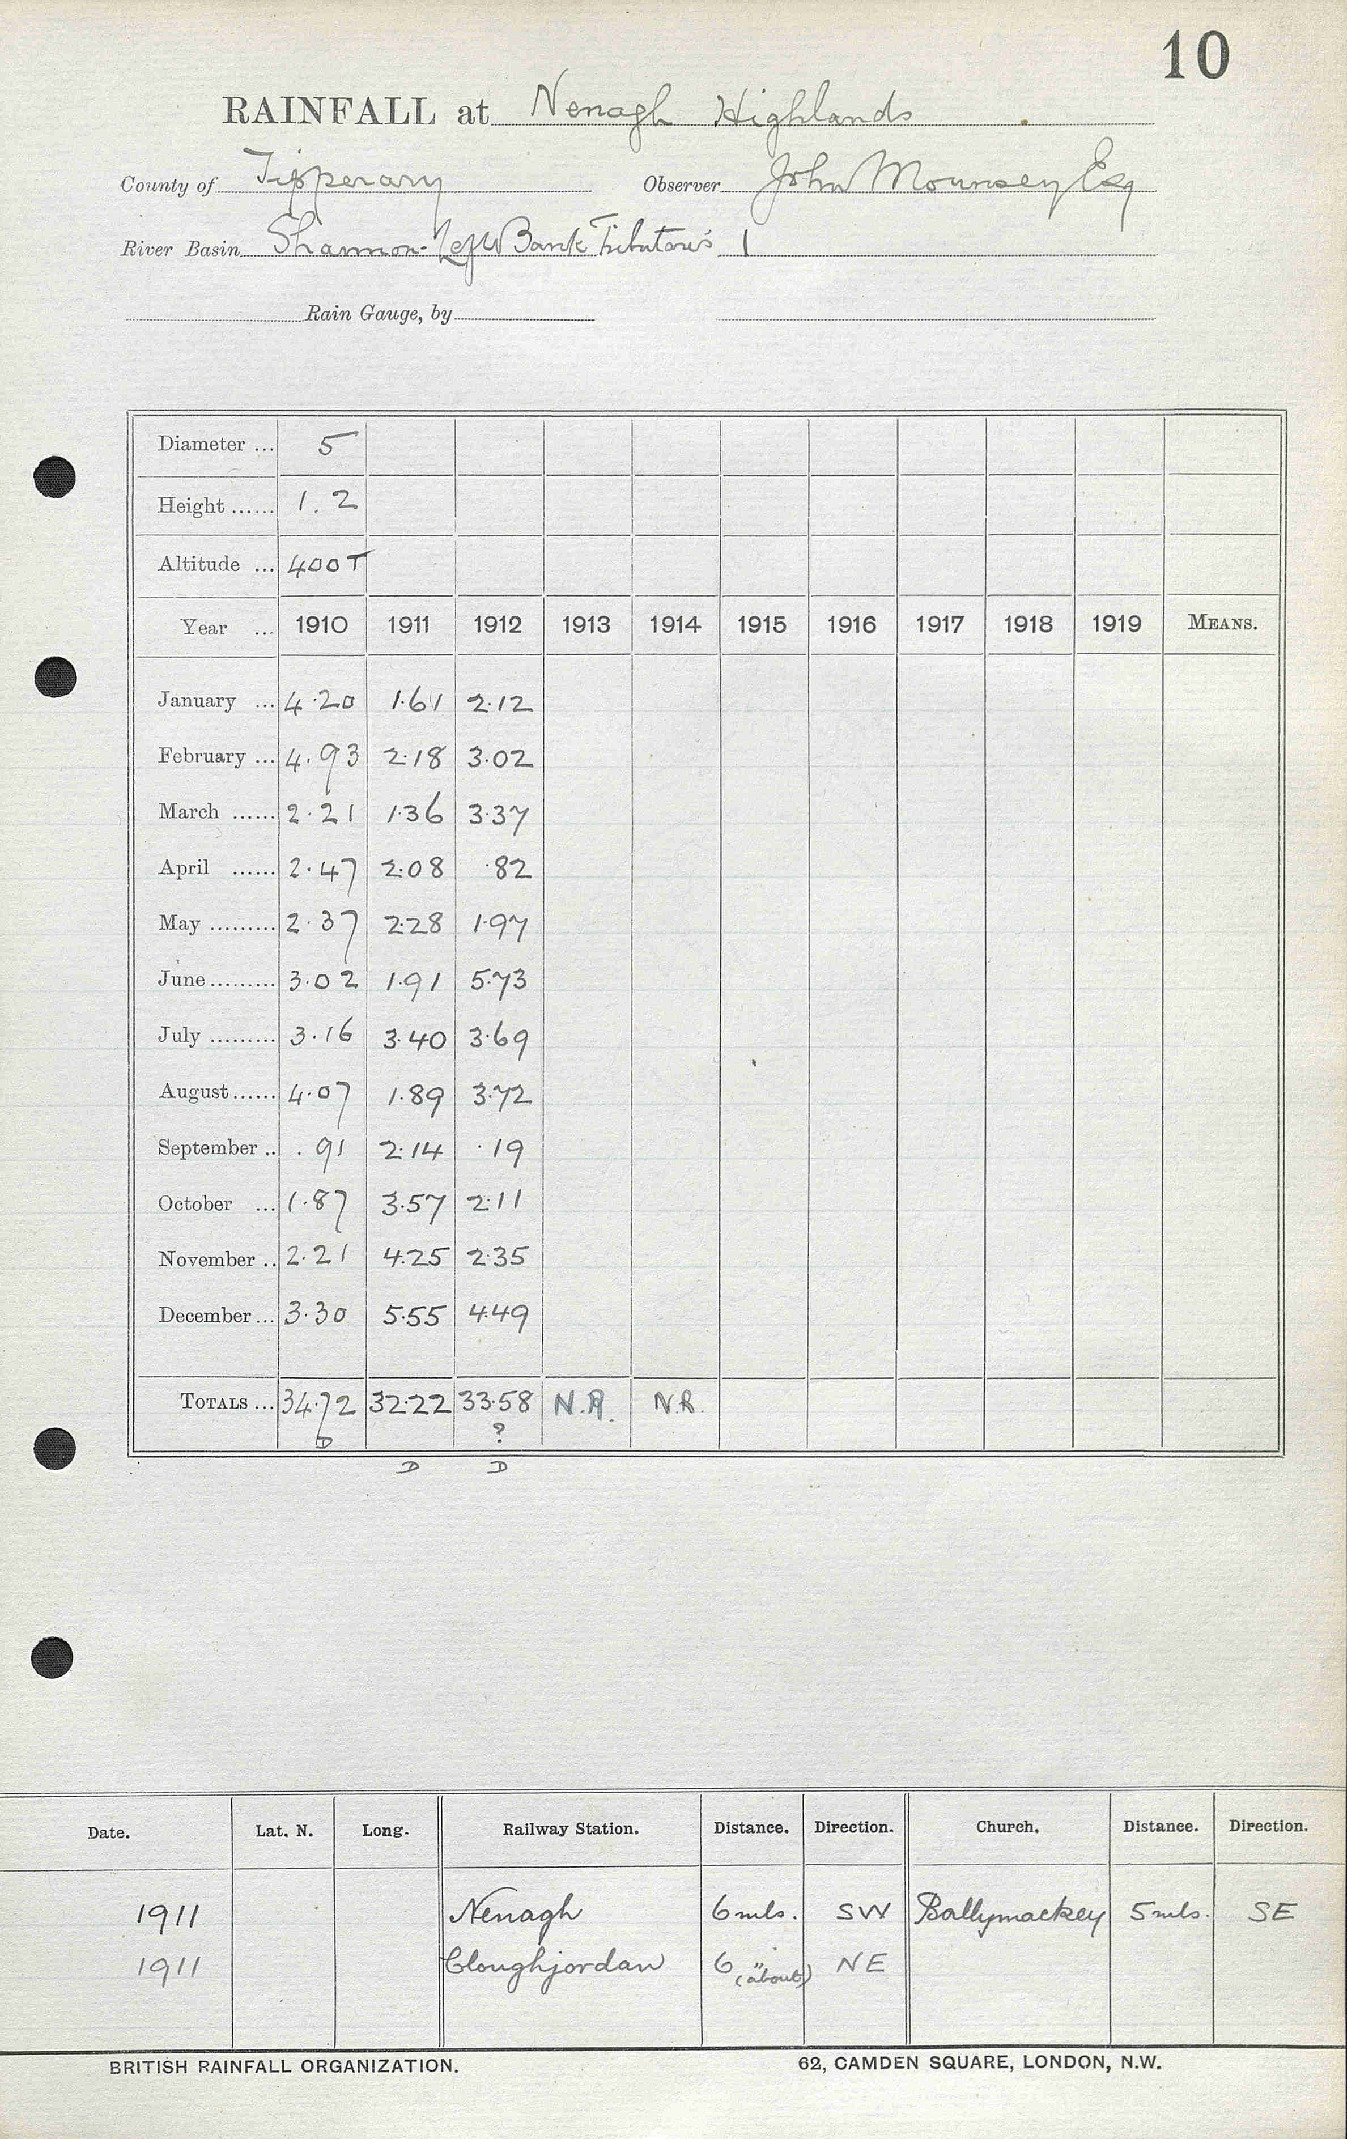 10
RAINFALL at Nenagh Highlands
County of Tipperary Observer John Mounsey Esq
River Basin Shannon-Left Bank Tributaries 1
Rain Gauge, by
Diameter ... 5
Height ...... 1.2
Altitude ... 400 T
Year ... 1910 1911 1912 1913 1914 1915 1916 1917 1918 1919 MEANS.
January ... 4.20 1.61 2.12
February ... 4.93 2.18 3.02
March ...... 2.21 1.36 3.37
April ...... 2.47 2.08 .82
May ......... 2.37 2.28 1.97
June ......... 3.02 1.91 5.73
July ......... 3.16 3.40 3.69
August ...... 4.07 1.89 3.72
September .. .91 2.14 .19
October ... 1.87 3.57 2.11
November .. 2.21 4.25 2.35
December ... 3.30 5.55 4.49
TOTALS ... 34.72 32.22 33.58 N.R. N.R.
D ?
D D
Date. Lat. N. Long. Railway Station. Distance. Direction. Church. Distance. Direction.
1911 Nenagh 6 mls. SW Ballymackey 5 mls. SE
1911 Cloughjordan 6 " (about) NE
BRITISH RAINFALL ORGANIZATION. 62, CAMDEN SQUARE, LONDON, N.W.